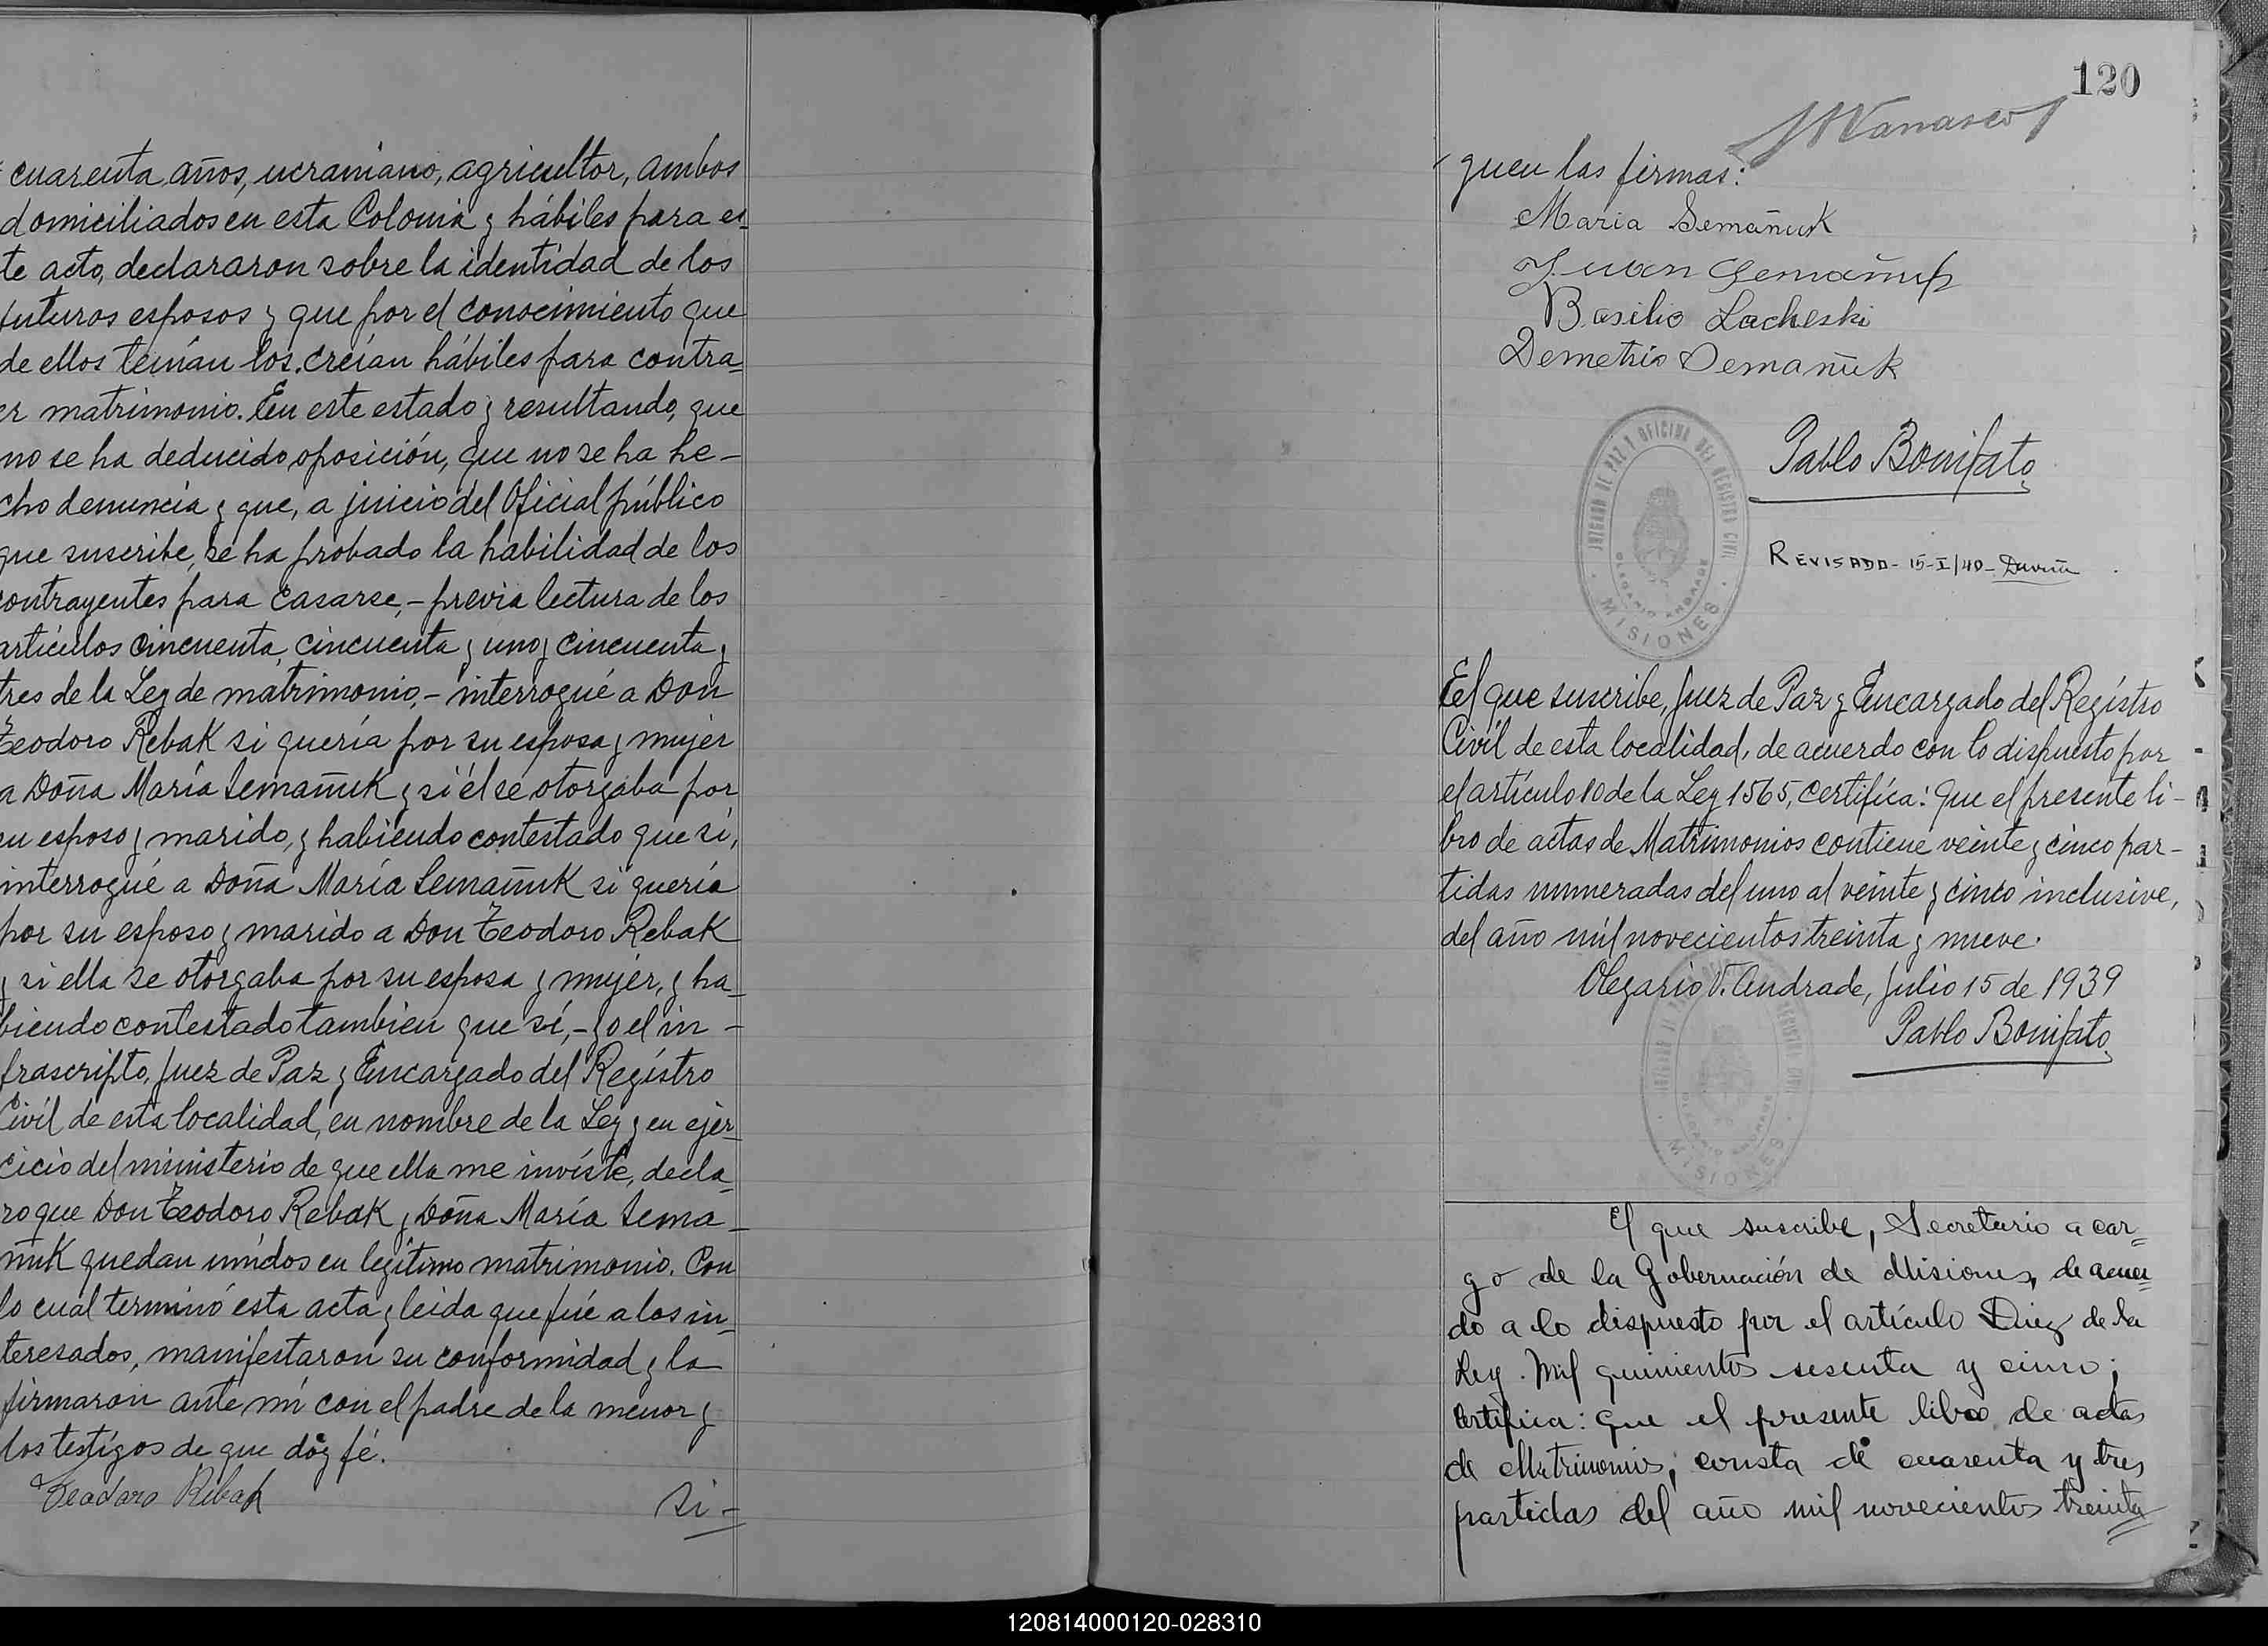 cuarenta años, ucraniano, agricultor, ambos
domiciliados en esta Colonia y hábiles para es-
te acto, declararon sobre la identidad de los
futuros esposos y que por el conocimiento que
de ellos tenían los creían hábiles para contra-
er matrimonio. En este estado y resultando, que
no se ha deducido oposición, que no se ha he-
cho denuncia y que, a juicio del Oficial público
que suscribe, se ha probado la habilidad de los
contrayentes para casarse,- previa lectura de los
artículos cincuenta, cincuenta y uno y cincuenta y
tres de la Ley de matrimonio,- interrogué a Don
Teodoro Rebak si quería por su esposa y mujer
a Doña María Semañuk y si él se otorgaba por
su esposo y marido, y habiendo contestado que sí,
interrogué a Doña María Semañuk si quería
por su esposo y marido a Don Teodoro Rebak
y si ella se otorgaba por su esposa y mujer, y ha-
biendo contestado tambien que sí,- yo el in-
frascripto, Juez de Paz y Encargado del Regístro
Civíl de esta localidad, en nombre de la Ley y en ejer-
cicio del ministerio de que ella me invíste, decla-
ro que Don Teodoro Rebak y Doña María Sema-
ñuk quedan unídos en legítimo matrimonio. Con
lo cual terminó esta acta y leída que fué a los in-
teresados, manifestaron su conformidad y la
firmaron ante mí con el padre de la menor y
los testígos de que doy fé.
Teodoro Rebak
si=
120
guen las firmas:
Maria Semañuk
Juan Semañuk
Basilio Lacheski
Demetrio Semañuk
Pablo Bonifato
JUZGADO DE PAZ Y OFICINA DEL REGISTRO CIVIL
OLEGARIO ANDRADE
MISIONES
REVISADO - 15-I/40-
El que suscribe, Juez de Paz y Encargado del Regístro
Civíl de esta localidad, de acuerdo con lo dispuesto por
el artículo 10 de la Ley 1565, certifíca: Que el presente li-
bro de actas de Matrimonios contiene veinte y cinco par-
tidas numeradas del uno al veinte y cinco inclusive,
del año míl novecientos treinta y nueve.
Olegario V. Andrade, Julio 15 de 1939
Pablo Bonifato
MISIONES
El que suscribe, Secretario a car-
go de la Gobernación de Misiones, de acuer-
do a lo dispuesto por el artículo Diez de la
Ley. Mil quinientos sesenta y cinco;
Certifica: que el presente libro de actas
de Matrimonios; consta de cuarenta y tres
partidas del año mil novecientos treinta
120814000120-028310